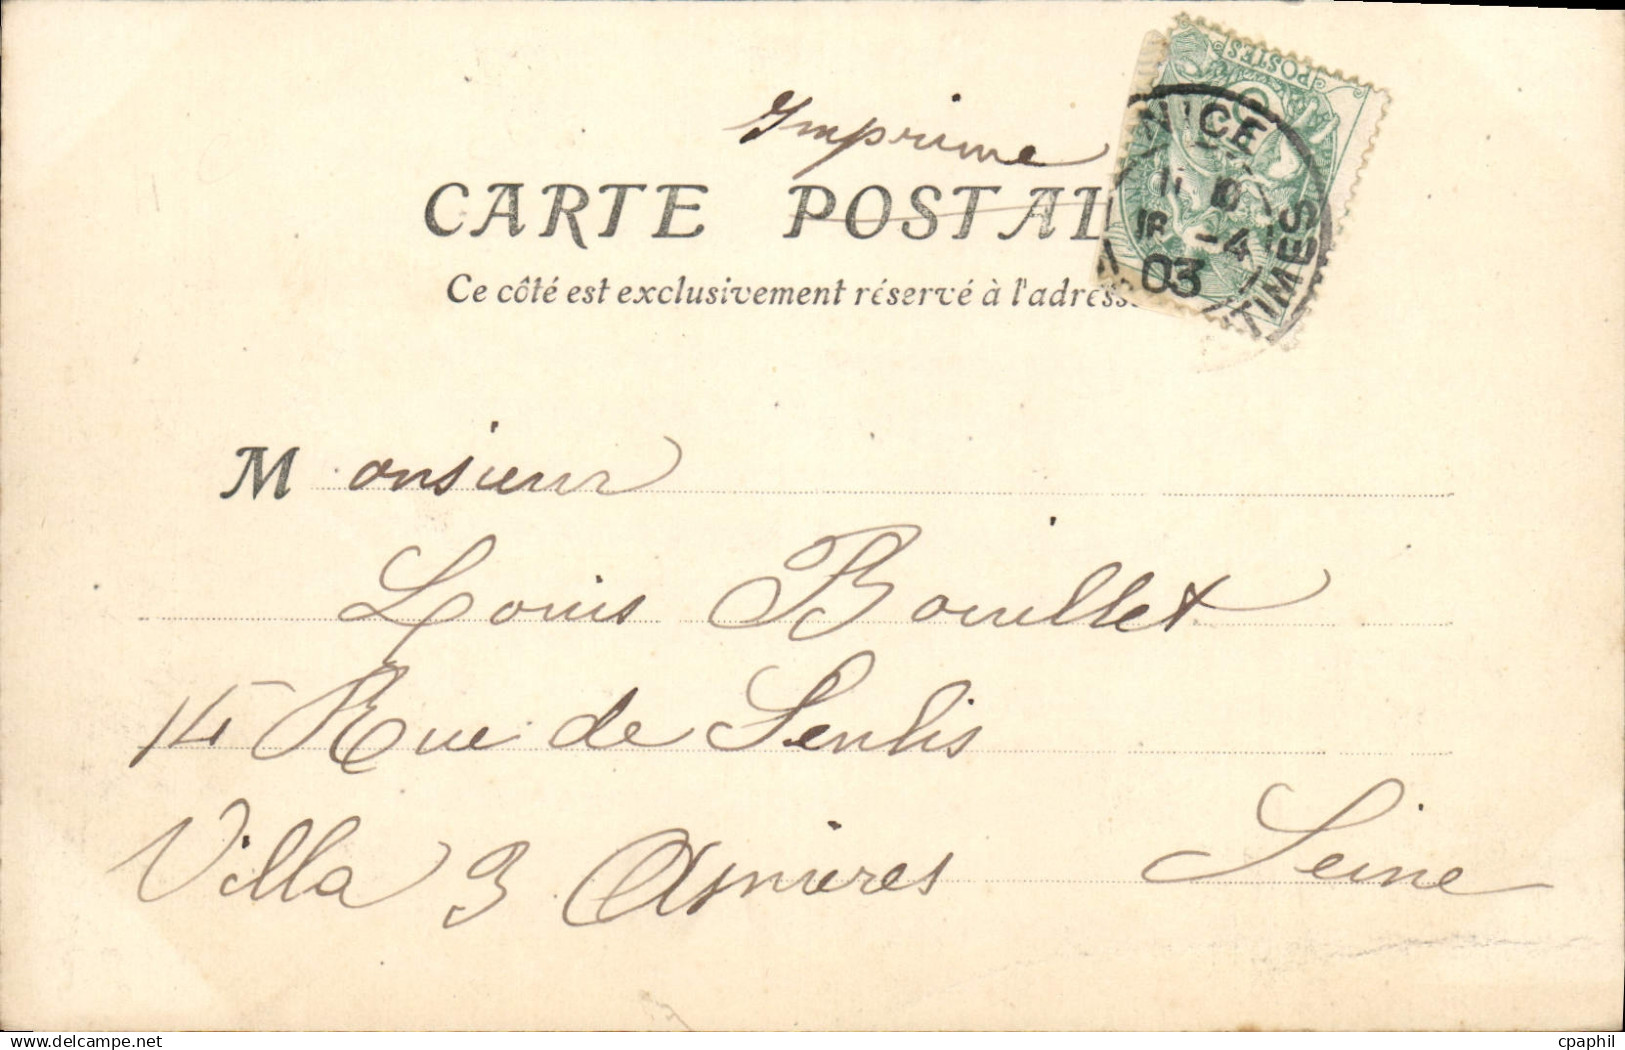 Imprime
CARTE POSTAL
Ce côté est exclusivement réservé à l'adresse
POSTES
NICE
18 -4
03
TIMES
Monsieur
Louis Bouillet
14 Rue de Senlis
Villa 3 Asnieres Seine
cpaphil